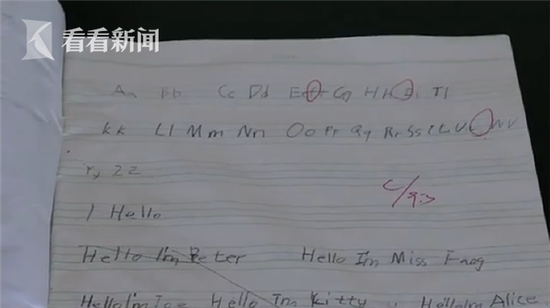 看看新闻
Aa Bb Cc Dd Hh
Kk Ll Mm Nn Oo Pp Qq Rr Ss
Yy Zz
C/93
1 Hello
Hello I'm Peter Hello Im Miss Fang
Hello I'm Joe Hello Im Kitty Hello Im Alice